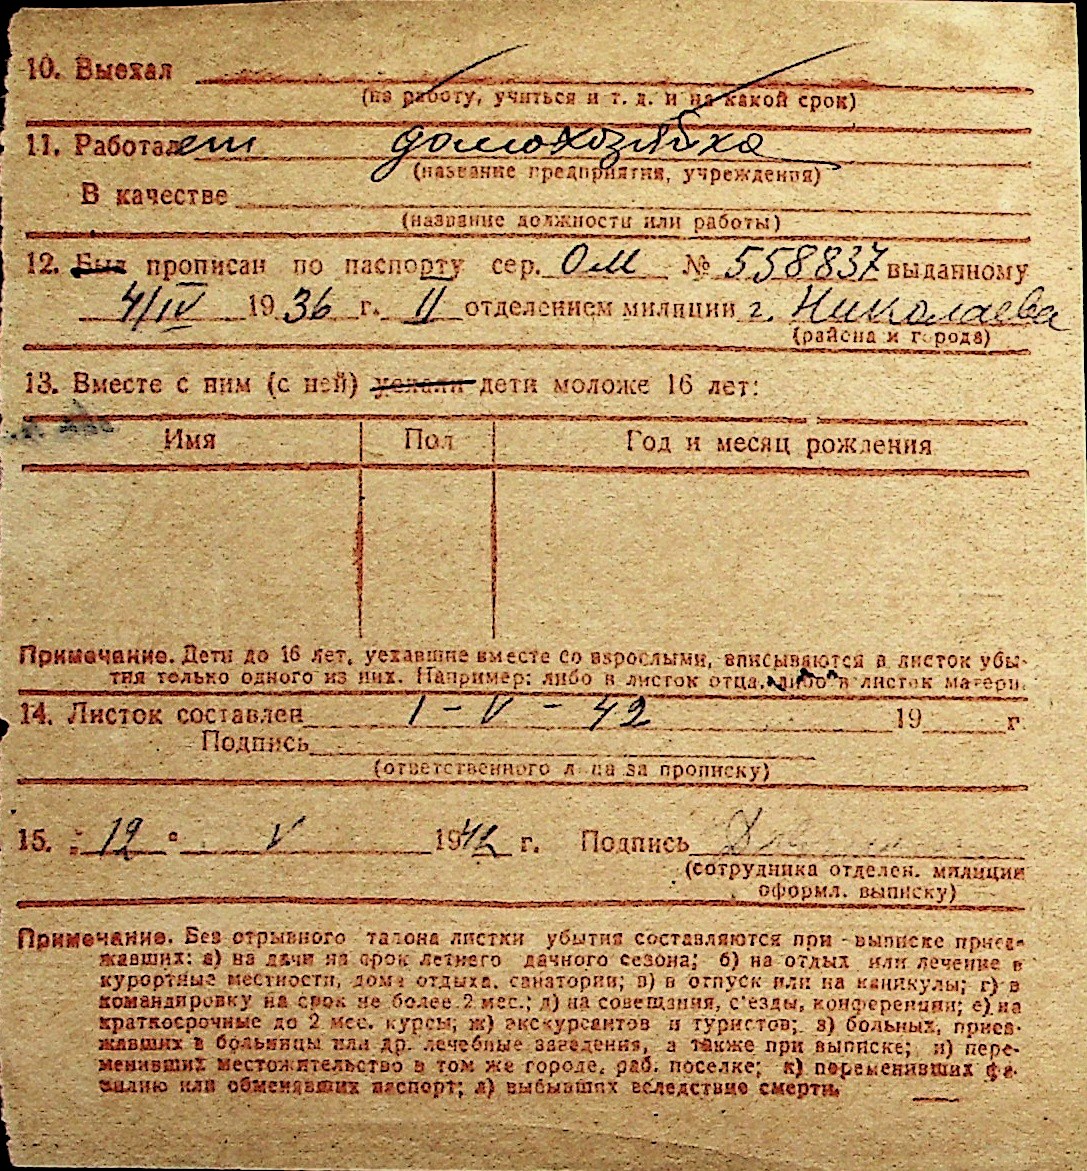 10. Выехал
(на работу, учиться и т. д. и на какой срок)
11. Работает домохозяйка
(название предприятия, учреждения)
В качестве
(название должности или работы)
12. Был прописан по паспорту сер. ОМ № 558837 выданному
4/IV 1936 г. II отделением милиции г. Николаева
(района и города)
13. Вместе с ним (с ней) уехали дети моложе 16 лет:
Имя Пол Год и месяц рождения
Примечание. Дети до 16 лет, уехавшие вместе со взрослыми, вписываются в листок убы-
тия только одного из них. Например: либо в листок отца, либо в листок матери.
14. Листок составлен 1 - V - 42 19 г.
Подпись
(ответственного лица за прописку)
15. „12“ V 1942 г. Подпись
(сотрудника отделен. милиции
оформл. выписку)
Примечание. Без отрывного талона листки убытия составляются при выписке приез-
жавших: а) на дачи на срок летнего дачного сезона; б) на отдых или лечение в
курортные местности, дома отдыха, санатории; в) в отпуск или на каникулы; г) в
командировку на срок не более 2 мес.; д) на совещания, с'езды, конференции; е) на
краткосрочные до 2 мес. курсы; ж) экскурсантов и туристов; з) больных, приез-
жавших в больницы или др. лечебные заведения, а также при выписке; и) пере-
менивших местожительство в том же городе, раб. поселке; к) переменивших фа-
милию или обменявших паспорт; л) выбывших вследствие смерти.